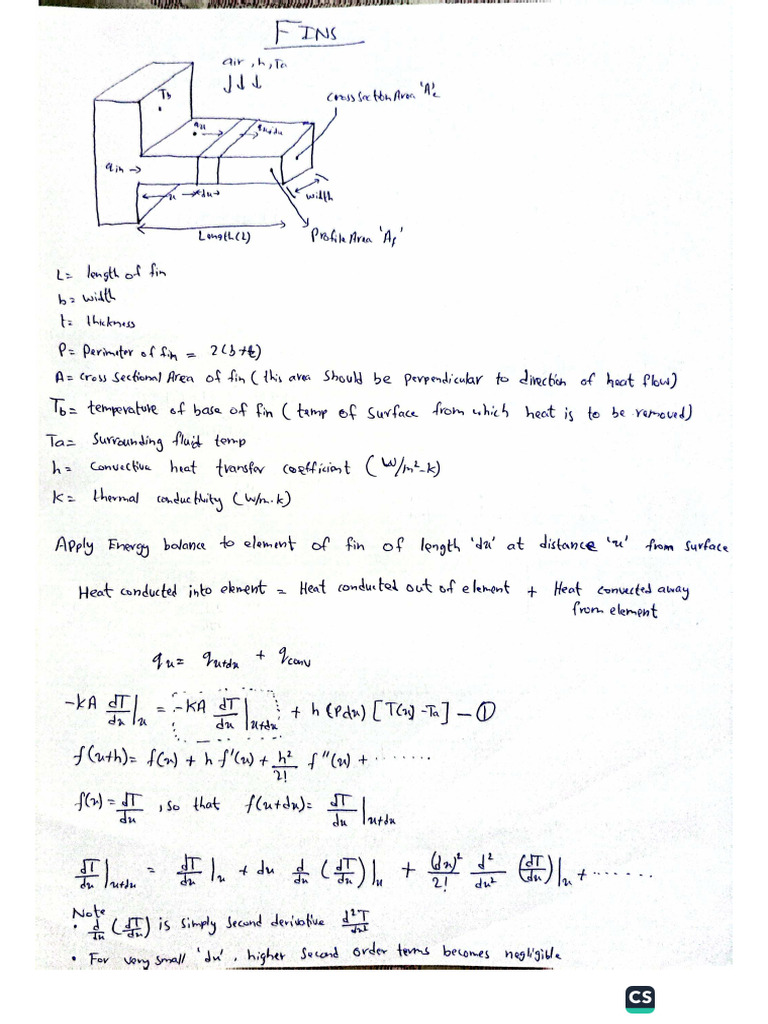 FINS
air, h, Ta
Cross Section Area 'Ac'
Tb
qx
qx+dx
qin
x
dx
width
Length(L)
Profile Area 'Af'
L= length of fin
b= width
t= thickness
P= Perimeter of fin = 2(b+t)
A= Cross Sectional Area of fin (this area should be perpendicular to direction of heat flow)
Tb= temperature of base of fin (temp of surface from which heat is to be removed)
Ta= Surrounding fluid temp
h= Convective heat transfer coefficient (W/m²-k)
K= thermal conductivity (W/m.k)
Apply Energy balance to element of fin of length 'dx' at distance 'x' from surface
Heat conducted into element = Heat conducted out of element + Heat convected away
from element
qx = qx+dx + qconv
-kA dT/dx|x = -kA dT/dx|x+dx + h (Pdx) [T(x) -Ta] — ①
f(x+h)= f(x) + h f'(x) + h²/2! f''(x) + .......
f(x) = dT/dx, so that f(x+dx)= dT/dx|x+dx
dT/dx|x+dx = dT/dx|x + dx d/dx (dT/dx)|x + (dx)²/2! d²/dx² (dT/dx)|x + ......
Note
• d/dx (dT/dx) is simply second derivative d²T/dx²
• For very small 'dx', higher second order terms becomes negligible
CS